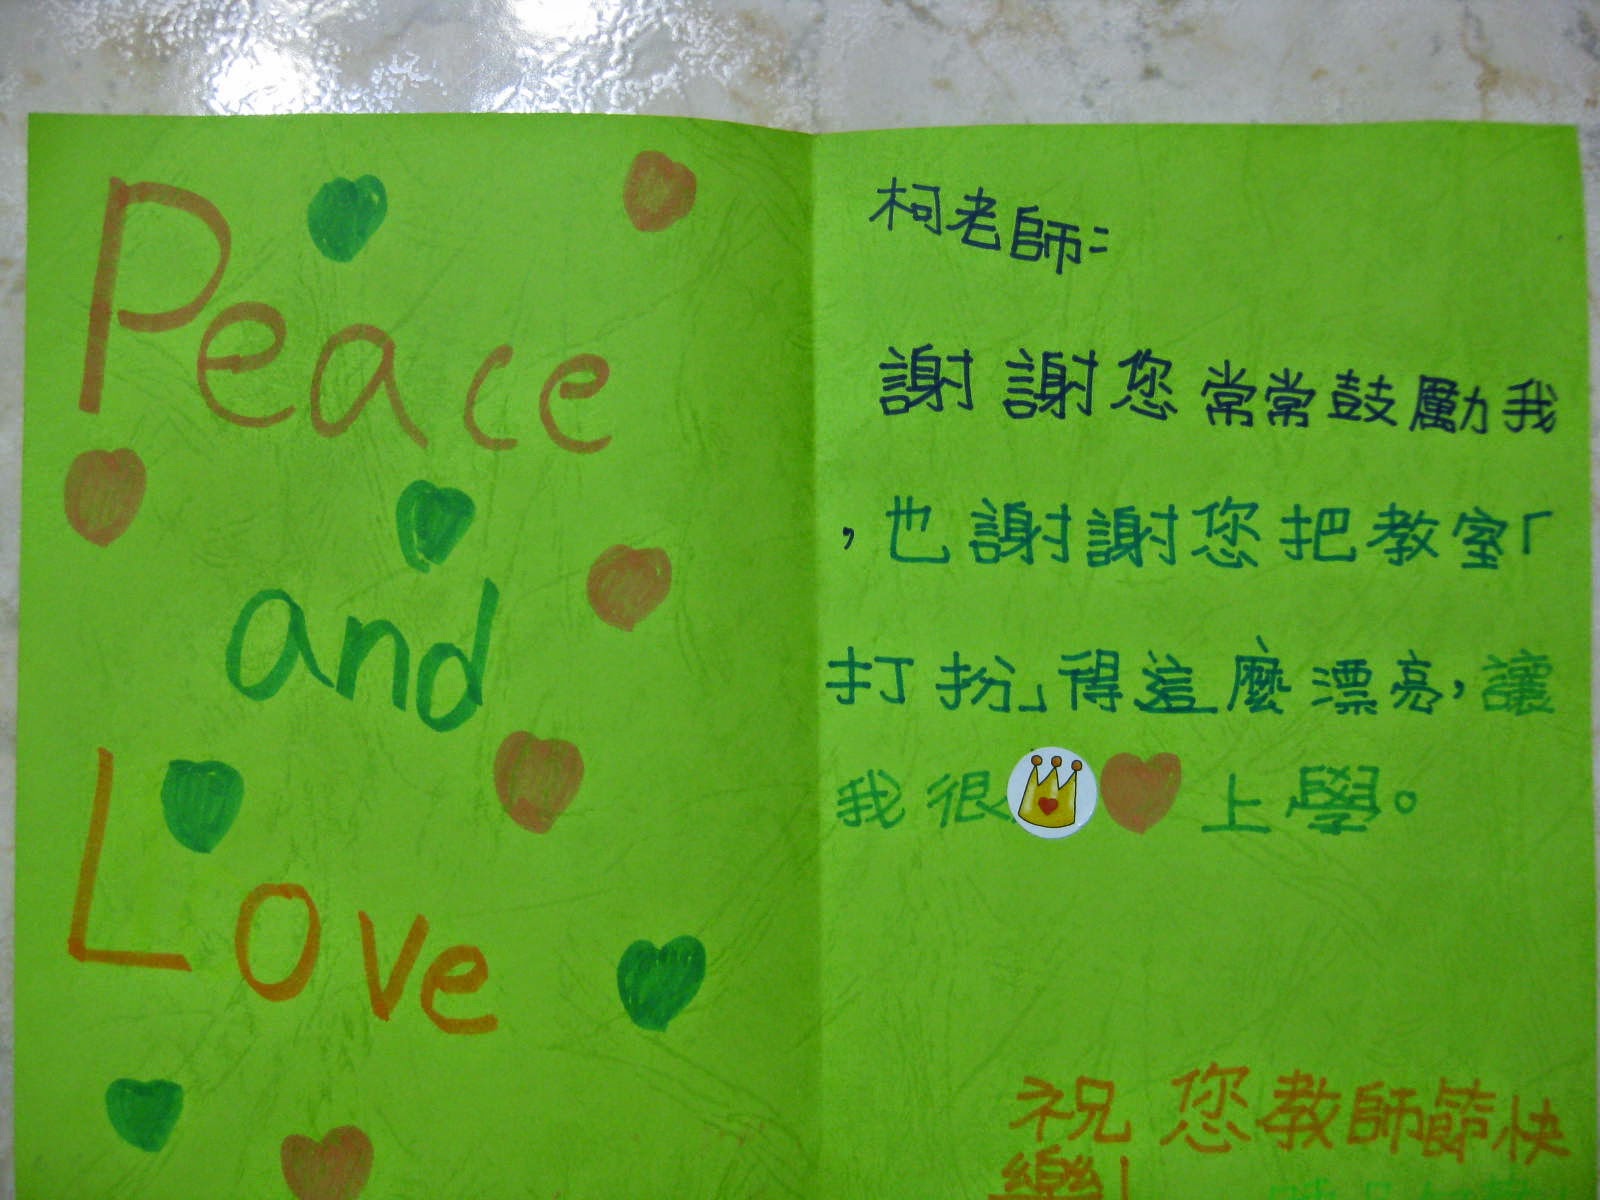 Peace
and
Love
柯老師:
謝謝您常常鼓勵我
，也謝謝您把教室「
打扮」得這麼漂亮，讓
我很上學。
祝您教師節快
樂!